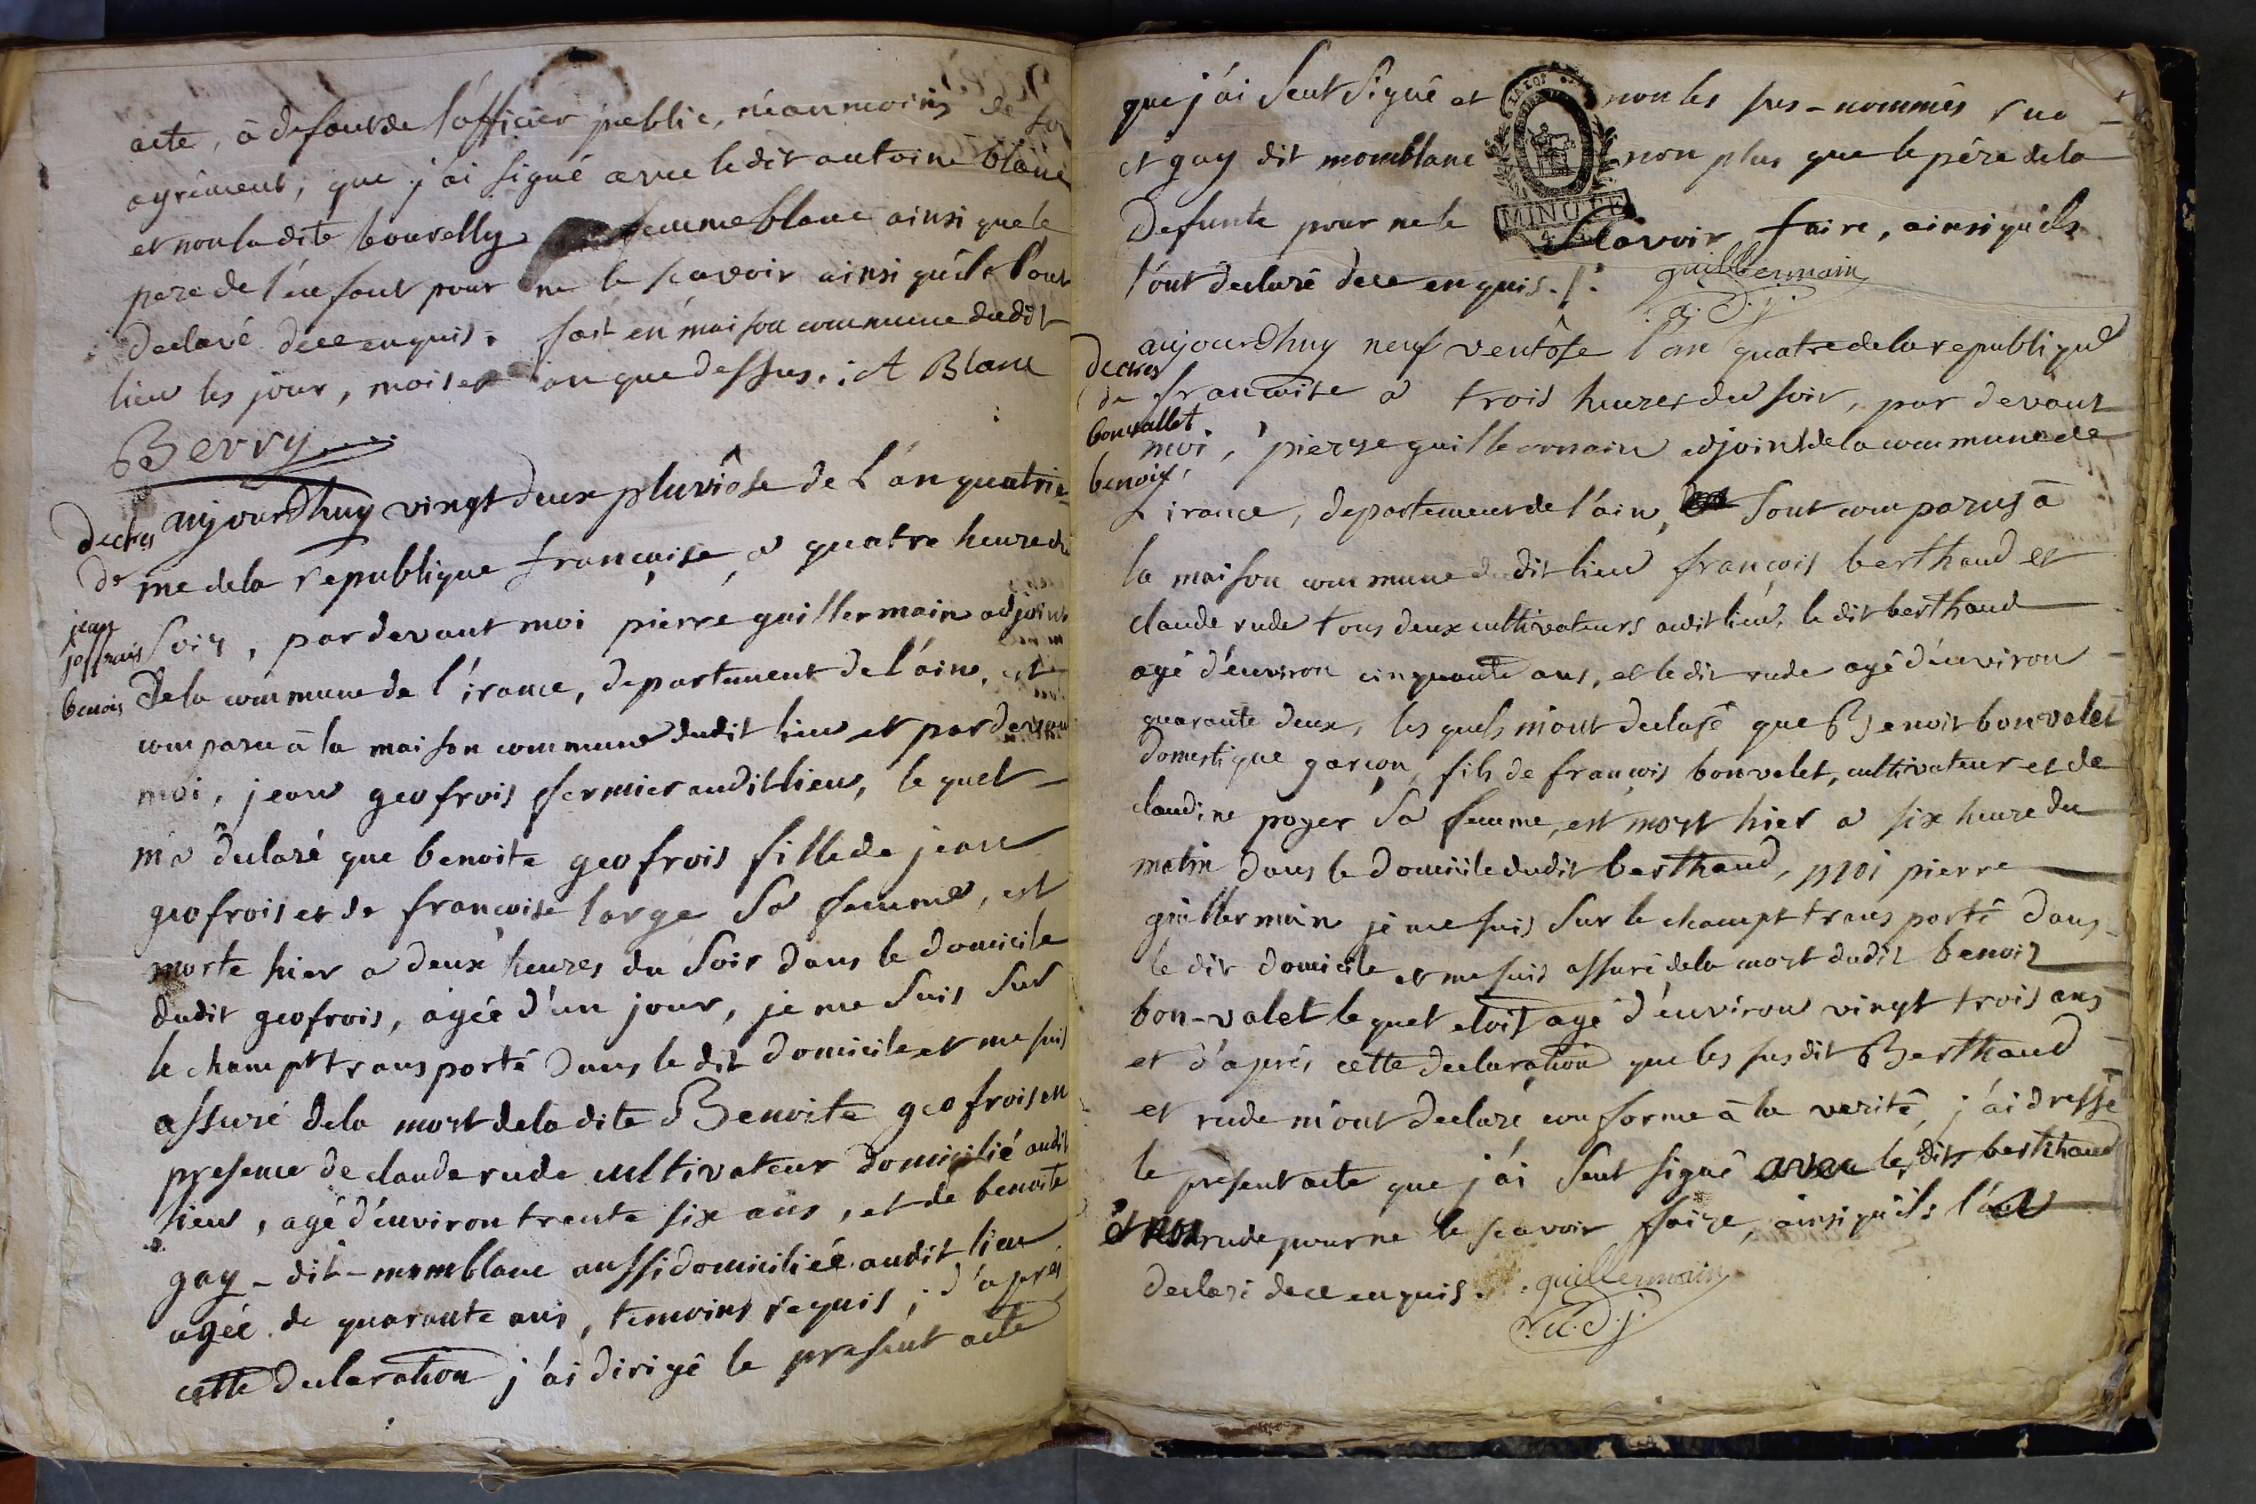 acte, â defaut de l'officier public, néanmoins de
agrêment, que j'ai signé avec le dit antoine blanc
et non la dite bourelly femme blanc ainsi que le
pere de l'enfant pour ne le scavoir ainsi qu'ils l'ont
declaré de ce enquis. fait en maison commune dudit
lieu les jour, mois et an que dessus. A Blanc
Berry
deces
de
jean
joffrais
benois
aujourdhuy vingt deux pluviôse de L'an quatriè-
me de la republique françaişe a quatre heure du
soir, par devant moi pierre guillermain adjoint
De la commune de l'irance, departement de l'ain, est
comparu â la maison commune dudit lieu et par devant
moi, jean geofrois fermier audit lieu, le quel
m'a declaré que benoite geofrois fille de jean
geofrois et de françoise large Sa femme, est
morte hier a deux heures du Soir dans le domicile
dudit geofrois, agée d'un jour, je me Suis Sur
le champt transporté dans le dit domicile et me suis
assuré de la mort de la dite Benoite geofrois en
presence de claude rude cultivateur domicilié audit
lieu, agé d'environ trente six ans, et de benoite
gay - dit - momblanc aussi domiciliée audit lieu
agée de quarante ans, temoins requis; d'apres
cette declaration j'ai dirigê le present acte
que j'ai Seul Signé et non les sus-nommés rud
et gay dit momblanc non plus que le pére de la
Defunte pour ne le Scavoir faire, ainsi qu'ils
l'ont declaré de ce enquis./.
guillermain
a.d.j.
MINUTE
deces
de
bonvallet
benoix
aujourdhuy neuf ventôse l'an quatre de la republique
francoise a trois heures du soir, par devant
moi, pierre guillermain adjoint de la commune de
L irance, departement de l'ain, Sont comparus â
la maison commune dudit lieu françois berthaud et
claude rude tous deux cultivateurs audit lieu, le dit berthaud
agé d'environ cinquante ans, et le dit rude agé d'environ
quarante deux, les quels m'ont declaré que Benoit bonvalet
domestique garçon, fils de françois bonvalet, cultivateur et de
claudine poyer Sa femme, est mort hier a six heure du
matin dans le domicile dudit berthaud, moi pierre
guillermain je me suis Sur le champt transportê dans
le dit domicile et me suis assuré de la mort dudit benoit
bon-valet le quel etoit agé d'environ vingt trois ans
et d'aprés cette declaration que les susdit Berthaud
et rude m'ont declaré conforme â la verité, j'ai dressé
le present acte que j'ai Seul signê avec le dit berthaud
et non rude pour ne le scavoir faire, ainsi qu'ils l'
declaré de ce enquis. guillermain
a.d.j.